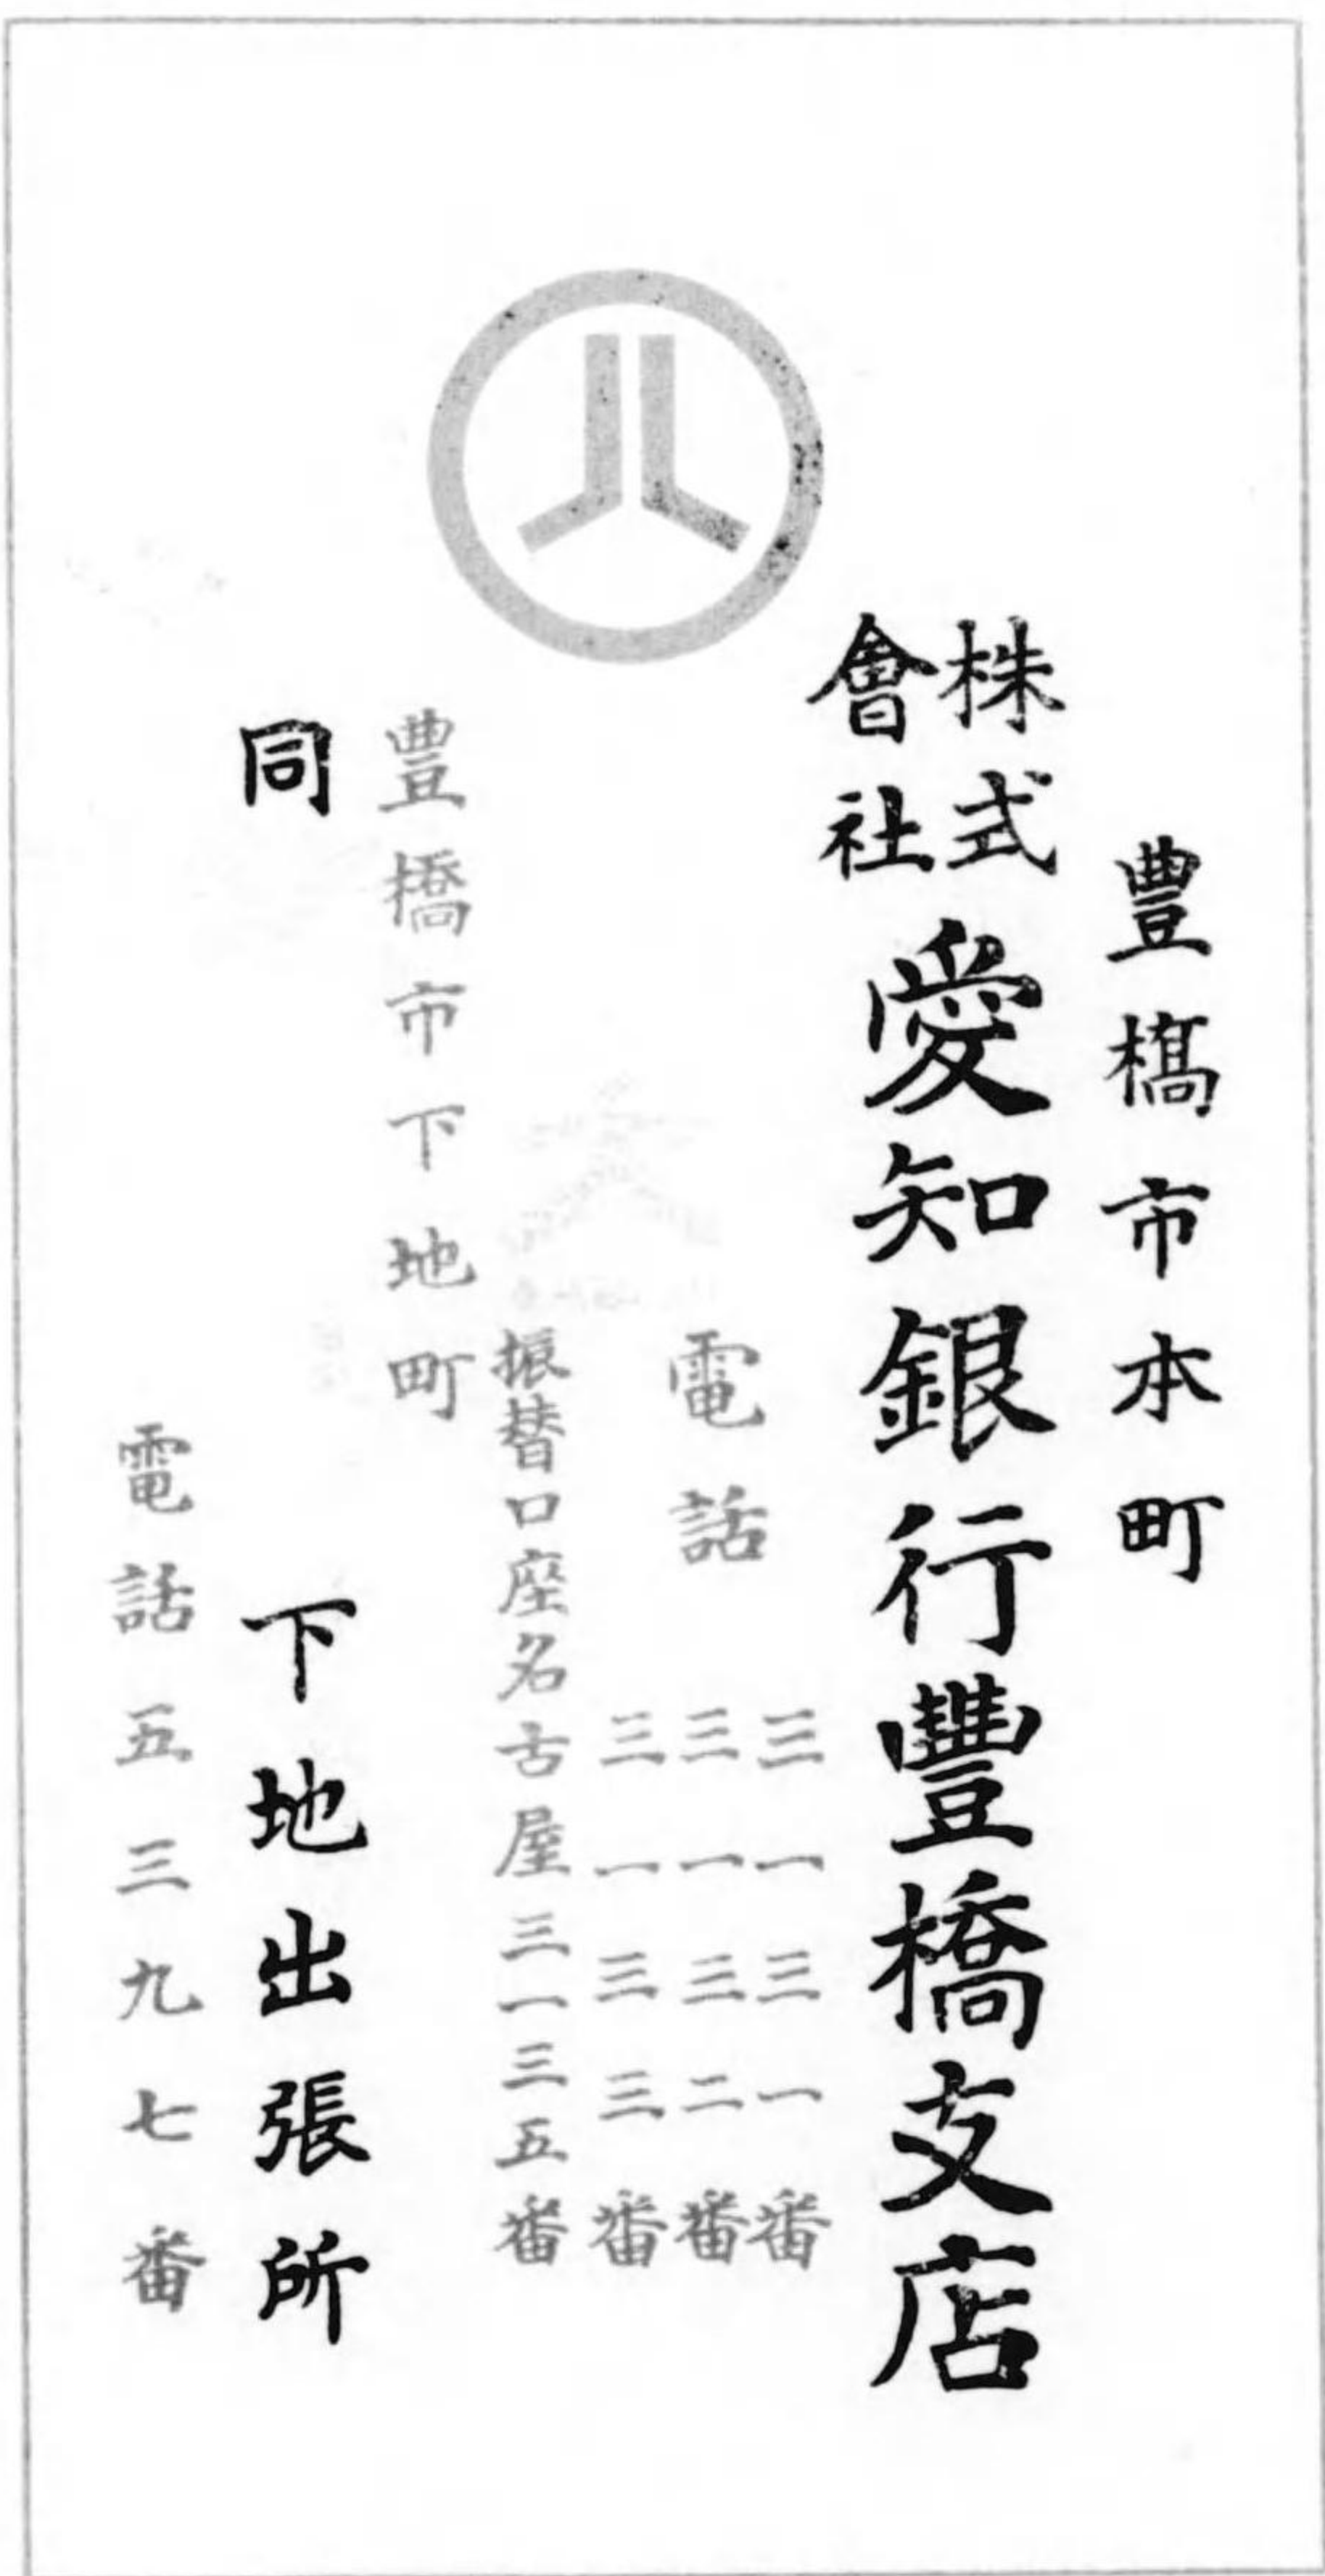 豊橋市本町
株式會社愛知銀行豐橋支店
電話
三一三一番
三一三二番
三一三三番
振替口座名古屋三一三五番
豊橋市下地町
同 下地出張所
電話五三九七番